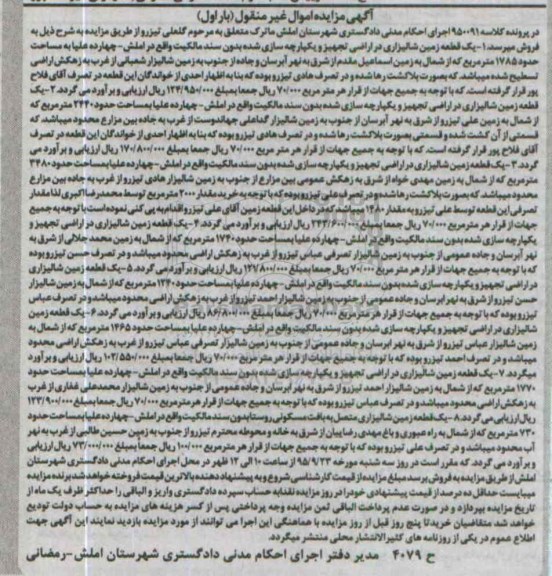 آگهی مزایده اموال غیر منقول (بار اول)
در پرونده کلاسه ۹۵۰۰۹۱ اجرای احکام مدنی دادگستری شهرستان املش ماترک متعلق به مرحوم گلعلی تیزرو از طریق مزایده به شرح ذیل به
فروش میرسد: ۱-یک قطعه زمین شالیزاری در اراضی تجهیز و یکپارچه سازی شده بدون سند مالکیت واقع در املش-چهارده علیا به مساحت
حدود ۱۷۸۵ مترمربع که از شمال به زمین اسماعیل مقدم از شرق به نهر آبرسان و جاده از جنوب به زمین شالیزار شعبانی از غرب به زهکش اراضی
تسطیح شده میباشد. که بصورت بلاکشت رها شده و در تصرف هادی تیزرو بوده که بنا به اظهار احدی از خواندگان این قطعه در تصرف آقای فلاح
پور قرار گرفته است. که با توجه به جمیع جهات از قرار هر متر مربع ۷۰/۰۰۰ ریال جمعا بمبلغ ۱۲۴/۹۵۰/۰۰۰ ریال ارزیابی و برآورد می گردد. ۲-یک
قطعه زمین شالیزاری در اراضی تجهیز و یکپارچه سازی شده بدون سند مالکیت واقع در املش-چهارده علیا به مساحت حدود ۲۴۴۰ مترمربع که
از شمال به زمین علی تیزرو از شرق به نهر آبرسان از جنوب به زمین شالیزار گداعلی جهاندوست از غرب به جاده بین مزارع محدود میباشد. که
قسمتی از آن کشت شده و قسمتی بصورت بلاکشت رها شده و در تصرف هادی تیزرو بوده که بنا به اظهار احدی از خواندگان این قطعه در تصرف
آقای فلاح پور قرار گرفته است. که با توجه به جمیع جهات از قرار هر متر مربع ۷۰/۰۰۰ ریال جمعا بمبلغ ۱۷۰/۸۰۰/۰۰۰ ریال ارزیابی و برآورد می
گردد. ۳-یک قطعه زمین شالیزاری در اراضی تجهیز و یکپارچه سازی شده بدون سند مالکیت واقع در املش-چهارده علیا بمساحت حدود ۳۴۸۰
مترمربع که از شمال به زمین مهدی خواه از شرق به زهکش عمومی بین مزارع از جنوب به زمین شالیزار هادی تیزرو از غرب به جاده بین مزارع
محدود میباشد. که بصورت بلاکشت رها شده و در تصرف علی تیزرو بوده که با توجه به خرید مقدار ۲۰۰۰ مترمربع توسط محمدرضا اکبری لذا مقدار
تصرفی این قطعه توسط علی تیزرو به مقدار ۱۴۸۰ میباشد. که در داخل این قطعه زمین آقای علی تیزرو اقدام به پی کنی نموده است با توجه به جمیع
جهات از قرار هر مترمربع ۷۰/۰۰۰ ریال جمعا بمبلغ ۲۴۳/۶۰۰/۰۰۰ ریال ارزیابی و برآورد می گردد. ۴-یک قطعه زمین شالیزاری در اراضی تجهیز و
یکپارچه سازی شده بدون سند مالکیت واقع در املش-چهارده علیا بمساحت حدود ۱۷۴۰ مترمربع که از شمال به زمین محمد جلالی از شرق به
نهر آبرسان و جاده عمومی از جنوب به زمین شالیزار تصرفی عباس تیزرو از غرب به زهکش اراضی محدود میباشد و در تصرف حسن تیزرو بوده
که با توجه به جمیع جهات از قرار هر متر مربع ۷۰/۰۰۰ ریال جمعا بمبلغ ۱۲۷/۸۰۰/۰۰۰ ریال ارزیابی و برآورد می گردد. ۵-یک قطعه زمین شالیزاری
در اراضی تجهیز و یکپارچه سازی شده بدون سند مالکیت واقع در املش-چهارده علیا به مساحت حدود ۱۲۴۰ مترمربع که از شمال به زمین شالیزار
حسن تیزرو از شرق به نهر ابرسان و جاده عمومی از جنوب به زمین شالیزار احمد تیزرو از غرب به زهکش اراضی محدود میباشد و در تصرف عباس
تیزرو بوده که با توجه به جمیع جهات از قرار هر متر مربع ۷۰/۰۰۰ ریال جمعا بمبلغ ۸۶/۸۰۰/۰۰۰ ریال ارزیابی و برآورد می گردد. ۶-یک قطعه زمین
شالیزاری در اراضی تجهیز و یکپارچه سازی شده بدون سند مالکیت واقع در املش-چهارده علیا بمساحت حدود ۱۴۶۵ مترمربع که از شمال به
زمین شالیزار عباس تیزرو از شرق به نهر ابرسان و جاده عمومی از جنوب به زمین شالیزار تصرفی عباس تیزرو از غرب به زهکش اراضی محدود
میباشد و در تصرف احمد تیزرو بوده که با توجه به جمیع جهات از قرار هر متر مربع ۷۰/۰۰۰ ریال جمعا بمبلغ ۱۰۲/۵۵۰/۰۰۰ ریال ارزیابی و برآورد
میگردد. ۷-یک قطعه زمین شالیزاری در اراضی تجهیز و یکپارچه سازی شده بدون سند مالکیت واقع در املش-چهارده علیا به مساحت حدود
۱۷۷۰ مترمربع که از شمال به زمین شالیزار احمد تیزرو از شرق به نهر آبرسان و جاده عمومی از جنوب به زمین شالیزار محمدعلی غفاری از غرب
به زهکش اراضی محدود میباشد و در تصرف عباس تیزرو بوده که با توجه به جمیع جهات از قرار هر مترمربع ۷۰/۰۰۰ ریال جمعا بمبلغ ۱۲۳/۹۰۰/۰۰۰
ریال ارزیابی می گردد. ۸-یک قطعه زمین شالیزاری متصل به بافت مسکونی روستا بدون سند مالکیت واقع در املش-چهارده علیا بمساحت حدود
۷۳۰ مترمربع که از شمال به راه عبوری و باغ مهدی رضاییان از شرق به خانه و محوطه محترم تیزرو از جنوب به زمین حسین طالبی از غرب به نهر
آب محدود میباشد و در تصرف علی تیزرو بوده که با توجه به جمیع جهات از قرار هر مترمربع ۱۰۰/۰۰۰ ریال جمعا بمبلغ ۷۳/۰۰۰/۰۰۰ ریال ارزیابی
و برآورد می گردد. که مقرر است در روز سه شنبه مورخه ۹۵/۹/۲۳ از ساعت ۱۰ الی ۱۲ ظهر در محل اجرای احکام مدنی دادگستری شهرستان
املش از طریق مزایده به فروش برسد مبلغ مزایده از قیمت کارشناسی شروع و به پیشنهاد دهنده بالاترین قیمت فروخته خواهد شد برنده مزایده
میبایست حداقل ده درصد از قیمت پیشنهادی خود را در روز مزایده نقدا به حساب سپرده دادگستری واریز و الباقی را حداکثر ظرف یک ماه از
تاریخ مزایده بپردازد و در صورت عدم پرداخت الباقی ثمن مزایده وجه پرداختی پس از کسر هزینه های مزایده به حساب دولت تودیع
خواهد شد متقاضیان خرید تا پنج روز قبل از روز مزایده با هماهنگی این اجرا می توانند از مورد مزایده بازدید نمایند این آگهی جهت
اطلاع عموم در یکی از روزنامه های کثیر الانتشار محلی منتشر میگردد.
ح ۴۰۷۹ مدیر دفتر اجرای احکام مدنی دادگستری شهرستان املش-رمضانی